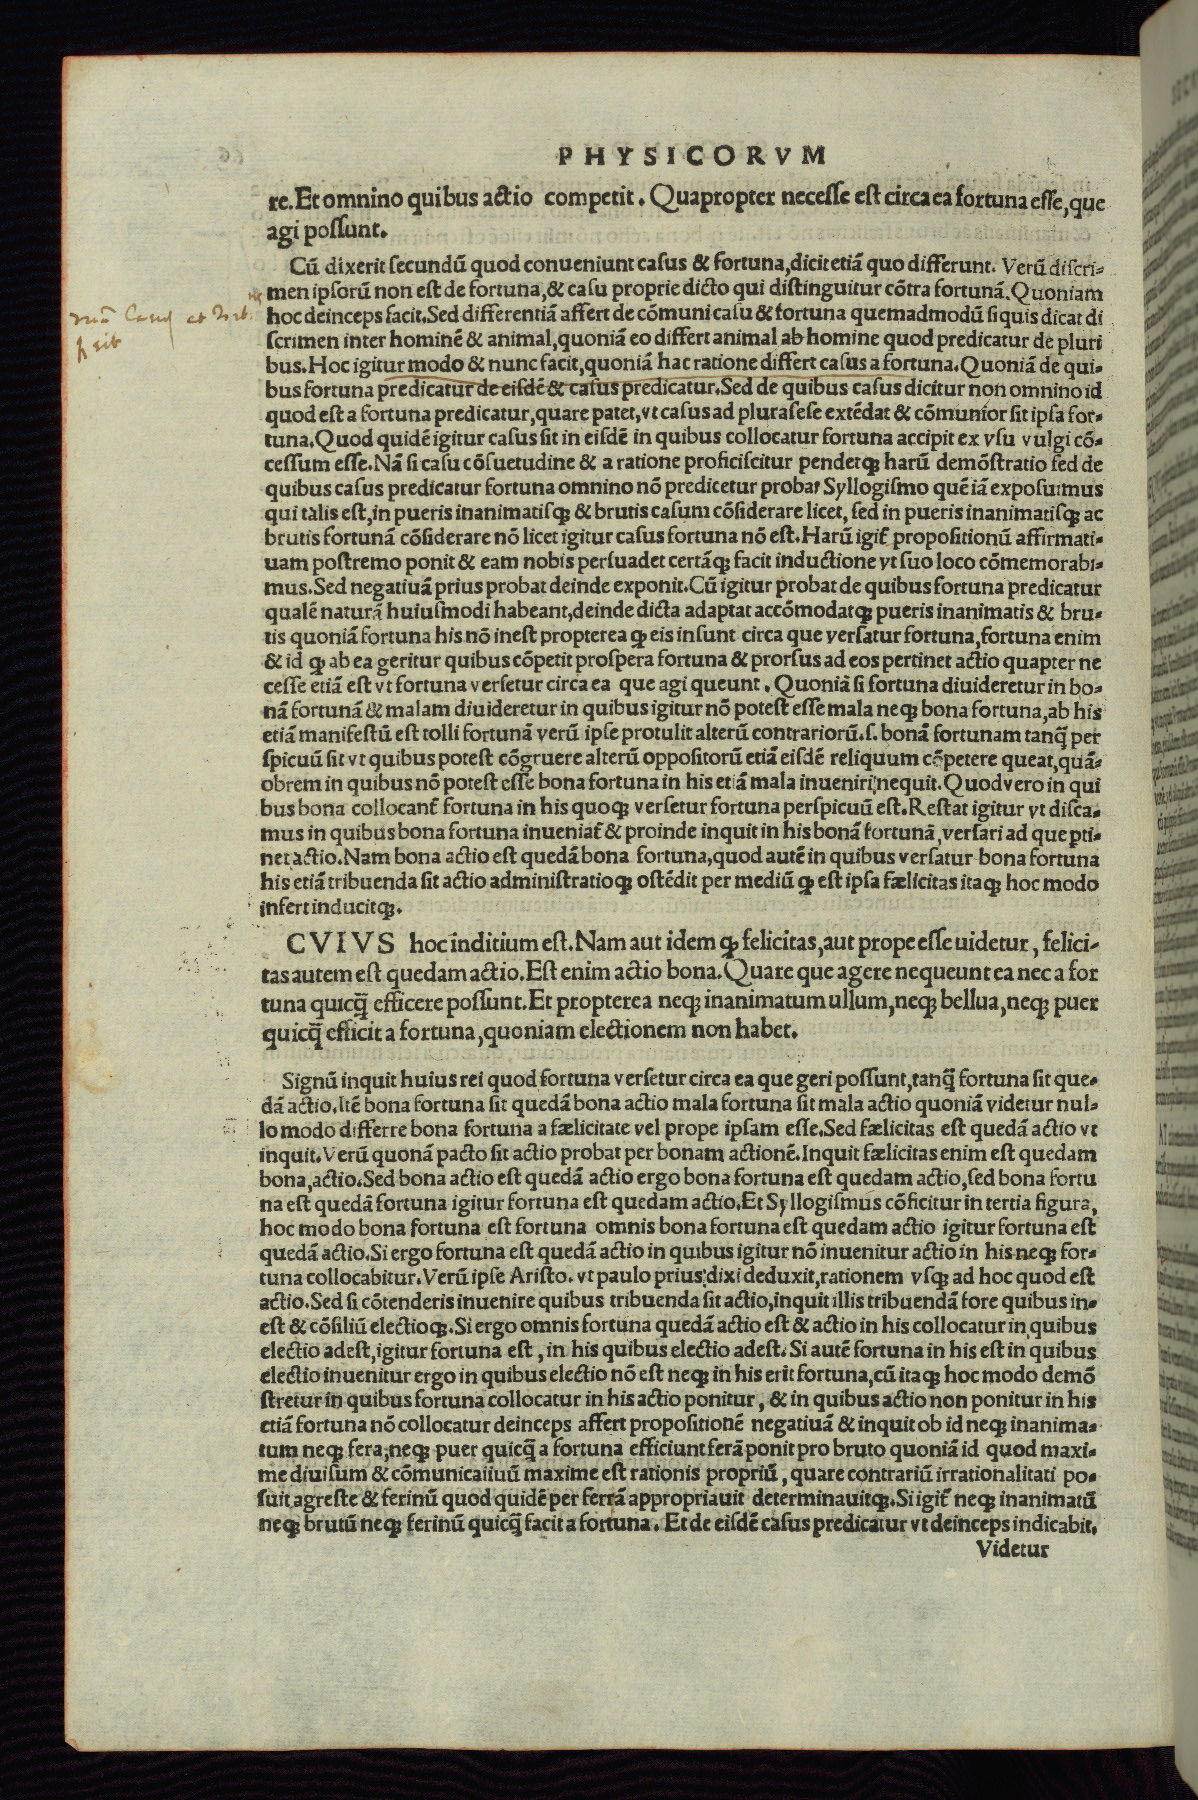 PHYSICORVM
re. Et omnino quibus actio competit. Quapropter necesse est circa ea fortuna esse, que
agi possunt.
Cū dixerit secundū quod conueniunt casus & fortuna, dicit etiā quo differunt. Verū discri-
men ipsorū non est de fortuna, & casu proprie dicto qui distinguitur cōtra fortunā. Quoniam
hoc deinceps facit. Sed differentiā affert de cōmuni casu & fortuna quemadmodū si quis dicat di
scrimen inter hominē & animal, quoniā eo differt animal ab homine quod predicatur de pluri
bus. Hoc igitur modo & nunc facit, quoniā hac ratione differt casus a fortuna. Quoniā de qui-
bus fortuna predicatur de eisdē & casus predicatur. Sed de quibus casus dicitur non omnino id
quod est a fortuna predicatur, quare patet, vt casus ad plura sese extēdat & cōmunior sit ipsa for-
tuna. Quod quidē igitur casus sit in eisdē in quibus collocatur fortuna accipit ex vsu vulgi cō-
cessum esse. Nā si casu cōsuetudine & a ratione proficiscitur pendetqȝ harū demōstratio sed de
quibus casus predicatur fortuna omnino nō predicetur probat Syllogismo quē iā exposuimus
qui talis est, in pueris inanimatisqȝ & brutis casum cōsiderare licet, sed in pueris inanimatisqȝ ac
brutis fortunā cōsiderare nō licet igitur casus fortuna nō est. Harū igit̄ propositionū affirmati-
uam postremo ponit & eam nobis persuadet certāqȝ facit inductione vt suo loco cōmemorabi-
mus. Sed negatiuā prius probat deinde exponit. Cū igitur probat de quibus fortuna predicatur
qualē naturā huiusmodi habeant, deinde dicta adaptat accōmodatqȝ pueris inanimatis & bru-
tis quoniā fortuna his nō inest propterea qȝ eis insunt circa que versatur fortuna, fortuna enim
& id qȝ ab ea geritur quibus cōpetit prospera fortuna & prorsus ad eos pertinet actio quapter ne
cesse etiā est vt fortuna versetur circa ea que agi queunt. Quoniā si fortuna diuideretur in bo-
nā fortunā & malam diuideretur in quibus igitur nō potest esse mala neqȝ bona fortuna, ab his
etiā manifestū est tolli fortunā verū ipse protulit alterū contrariorū. s. bonā fortunam tanq̄ per
spicuū sit vt quibus potest cōgruere alterū oppositorū etiā eisdē reliquum cōpetere queat, quā-
obrem in quibus nō potest esse bona fortuna in his etiā mala inueniri nequit. Quod vero in qui
bus bona collocant̄ fortuna in his quoqȝ versetur fortuna perspicuū est. Restat igitur vt disca-
mus in quibus bona fortuna inueniat̄ & proinde inquit in his bonā fortunā, versari ad que pti-
net actio. Nam bona actio est quedā bona fortuna, quod autē in quibus versatur bona fortuna
his etiā tribuenda sit actio administratioqȝ ostēdit per mediū qȝ est ipsa fælicitas itaqȝ hoc modo
infert inducitqȝ.
CVIVS hoc inditium est. Nam aut idem qȝ felicitas, aut prope esse uidetur, felici-
tas autem est quedam actio. Est enim actio bona. Quare que agere nequeunt ea nec a for
tuna quicq̄ efficere possunt. Et propterea neqȝ inanimatum ullum, neqȝ bellua, neqȝ puer
quicq̄ efficit a fortuna, quoniam electionem non habet.
Signū inquit huius rei quod fortuna versetur circa ea que geri possunt, tanq̄ fortuna sit que-
dā actio. Itē bona fortuna sit quedā bona actio mala fortuna sit mala actio quoniā videtur nul-
lo modo differre bona fortuna a fælicitate vel prope ipsam esse. Sed fælicitas est quedā actio vt
inquit. Verū quonā pacto sit actio probat per bonam actionē. Inquit fælicitas enim est quedam
bona, actio. Sed bona actio est quedā actio ergo bona fortuna est quedam actio, sed bona fortu
na est quedā fortuna igitur fortuna est quedam actio. Et Syllogismus cōficitur in tertia figura,
hoc modo bona fortuna est fortuna omnis bona fortuna est quedam actio igitur fortuna est
quedā actio. Si ergo fortuna est quedā actio in quibus igitur nō inuenitur actio in his neqȝ for-
tuna collocabitur. Verū ipse Aristo. vt paulo prius dixi deduxit, rationem vsqȝ ad hoc quod est
actio. Sed si cōtenderis inuenire quibus tribuenda sit actio, inquit illis tribuendā fore quibus in-
est & cōsiliū electioqȝ. Si ergo omnis fortuna quedā actio est & actio in his collocatur in quibus
electio adest, igitur fortuna est, in his quibus electio adest. Si autē fortuna in his est in quibus
electio inuenitur ergo in quibus electio nō est neqȝ in his erit fortuna, cū itaqȝ hoc modo demō
stretur in quibus fortuna collocatur in his actio ponitur, & in quibus actio non ponitur in his
etiā fortuna nō collocatur deinceps affert propositionē negatiuā & inquit ob id neqȝ inanima-
tum neqȝ fera, neqȝ puer quicq̄ a fortuna efficiunt ferā ponit pro bruto quoniā id quod maxi-
me diuisum & cōmunicatiuū maxime est rationis propriū, quare contrariū irrationalitati po-
suit agreste & ferinū quod quidē per ferrā appropriauit determinauitqȝ. Si igit̄ neqȝ inanimatū
neqȝ brutū neqȝ ferinū quicq̄ facit a fortuna. Et de eisdē casus predicatur vt deinceps indicabit.
Videtur